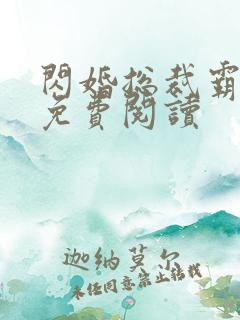 閃婚总裁霸
免費閱讀
迦纳莫尔
未经同意禁止转载